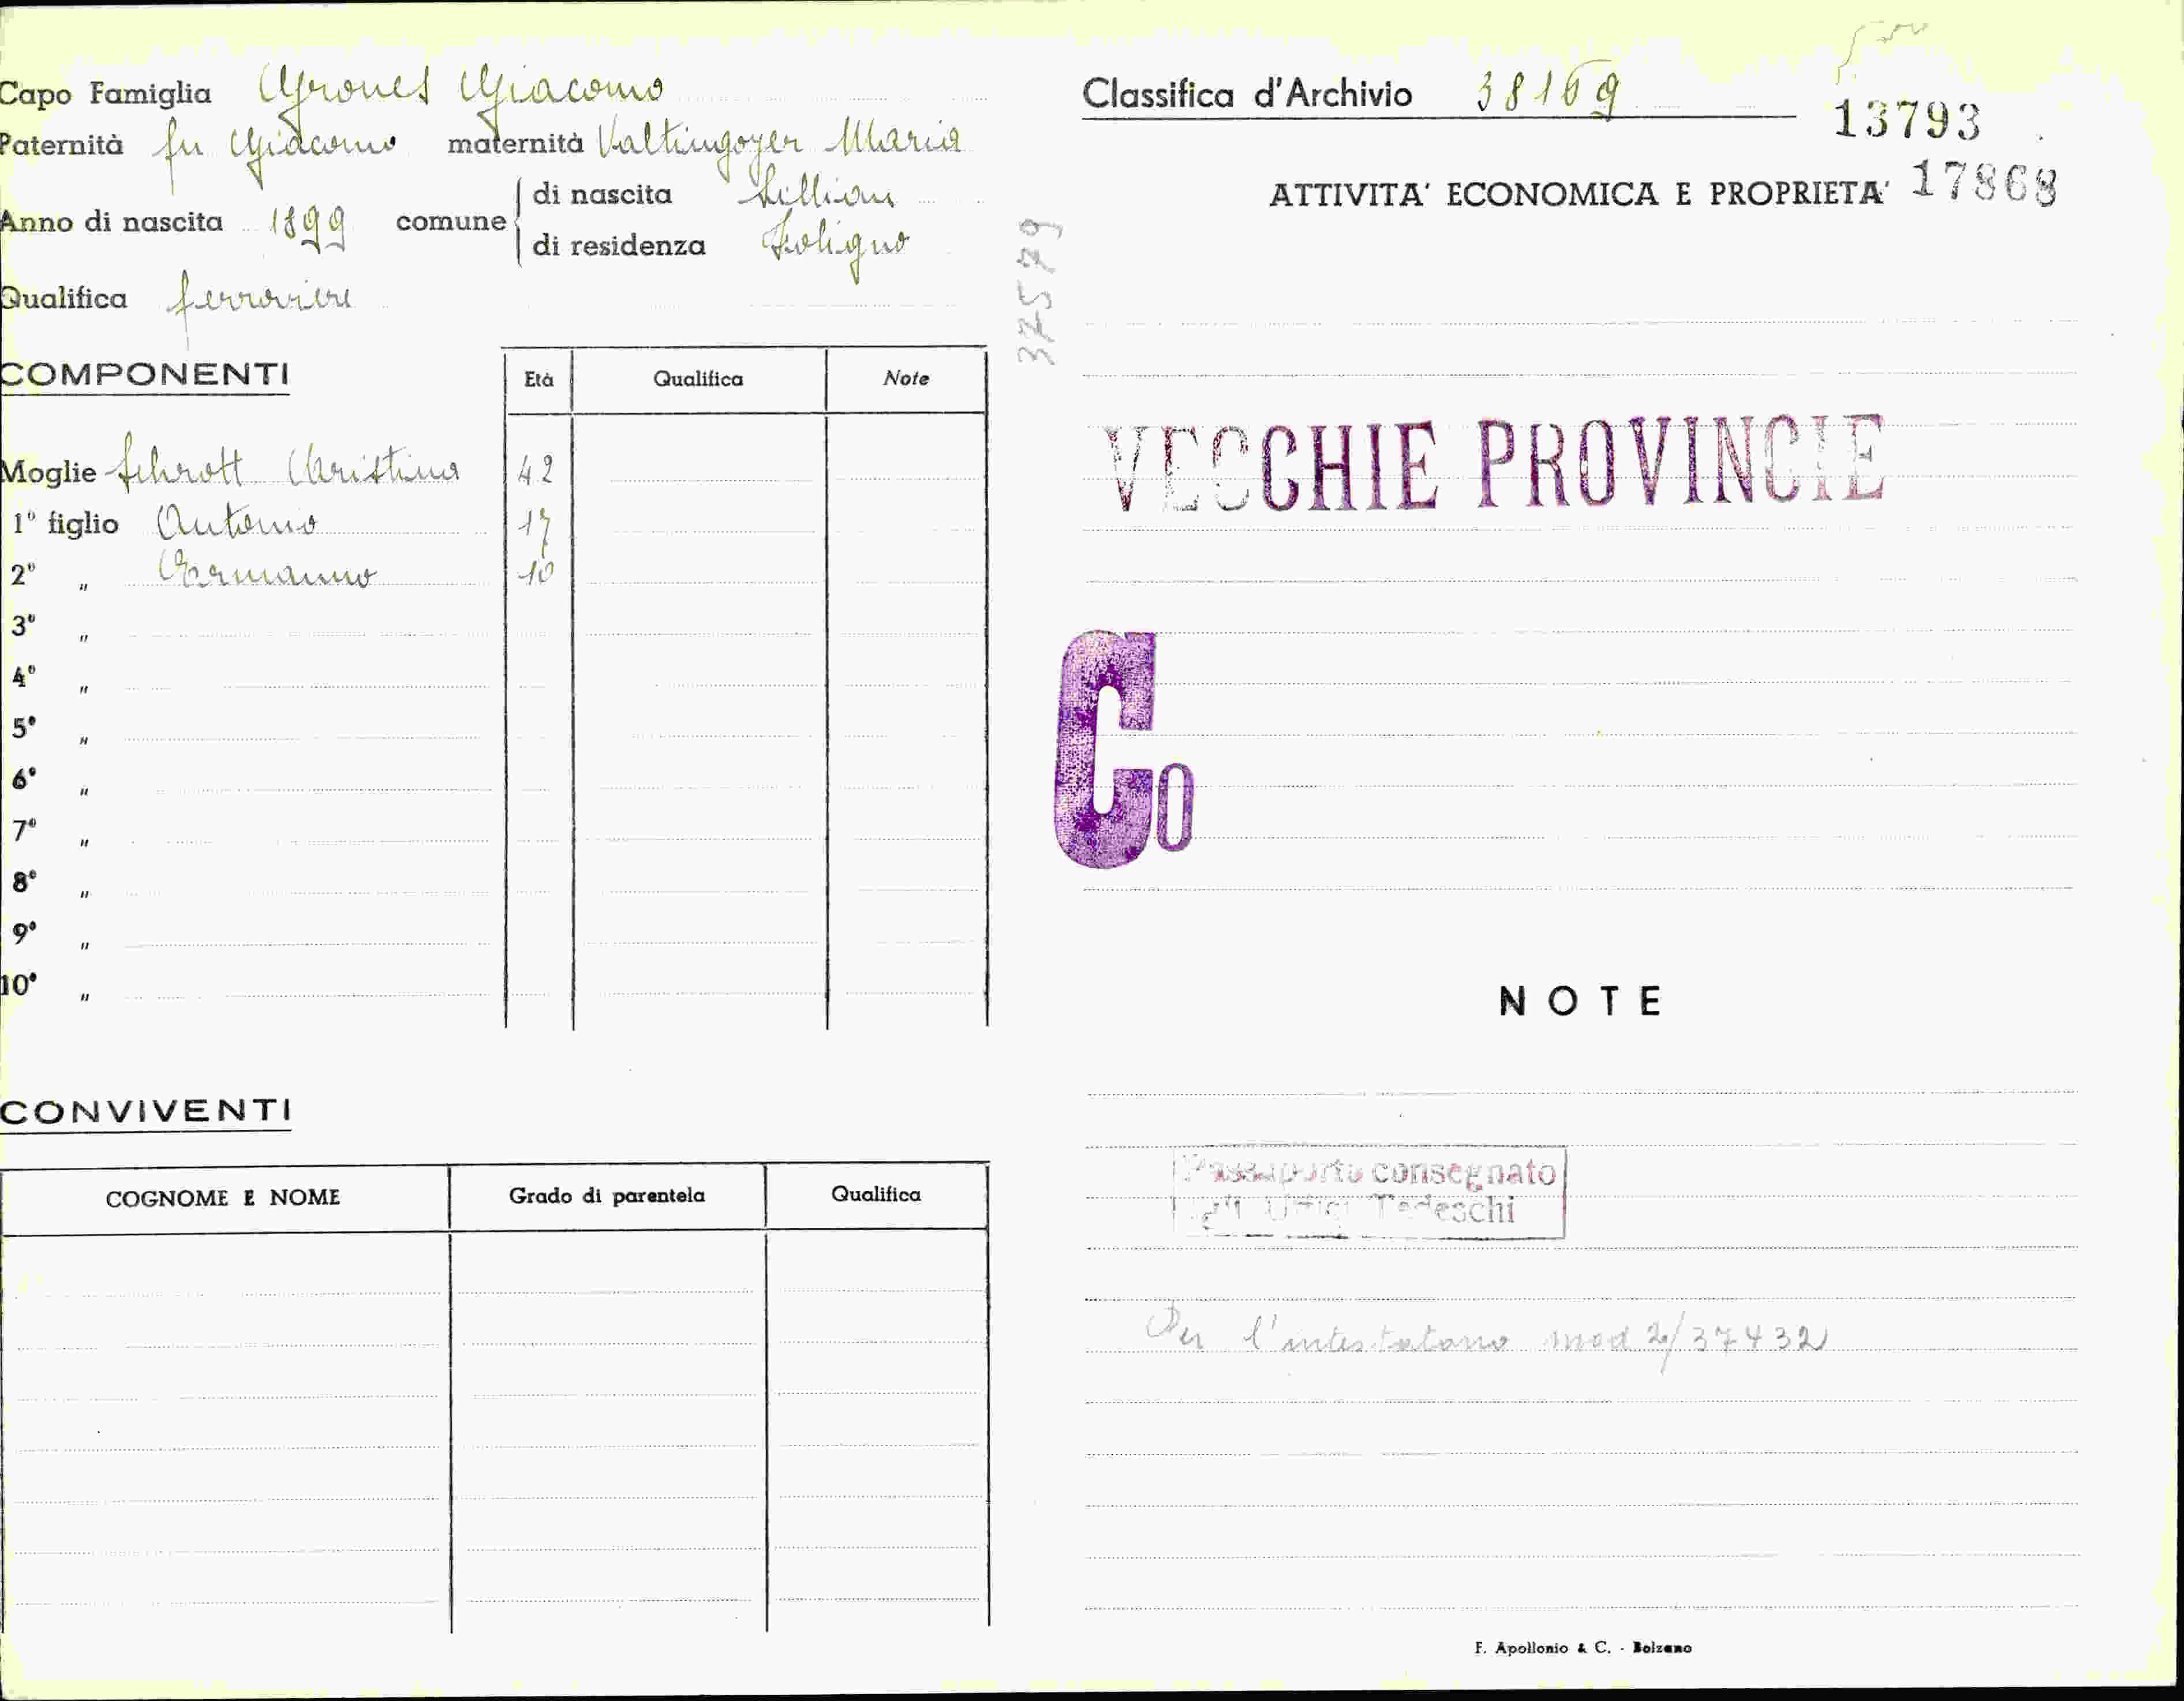 Capo Famiglia Grones Giacomo
Paternità fu Giacomo maternità Valtingoyer Maria
Anno di nascita 1899 comune di nascita Sillian
di residenza Foligno
Qualifica ferroviere
COMPONENTI
Età Qualifica Note
Moglie Schrott Cristina 42
1º figlio Antonio 17
2º " Ermanno 10
3º "
4º "
5º "
6º "
7º "
8º "
9º "
10º "
CONVIVENTI
COGNOME E NOME Grado di parentela Qualifica
Classifica d'Archivio 38169
13793
ATTIVITA' ECONOMICA E PROPRIETA' 17868
37579
VECCHIE PROVINCIE
Co
NOTE
Passaporto consegnato
gli Uffici Tedeschi
Per l'intestatario mod 2/37432
F. Apollonio & C. - Bolzano